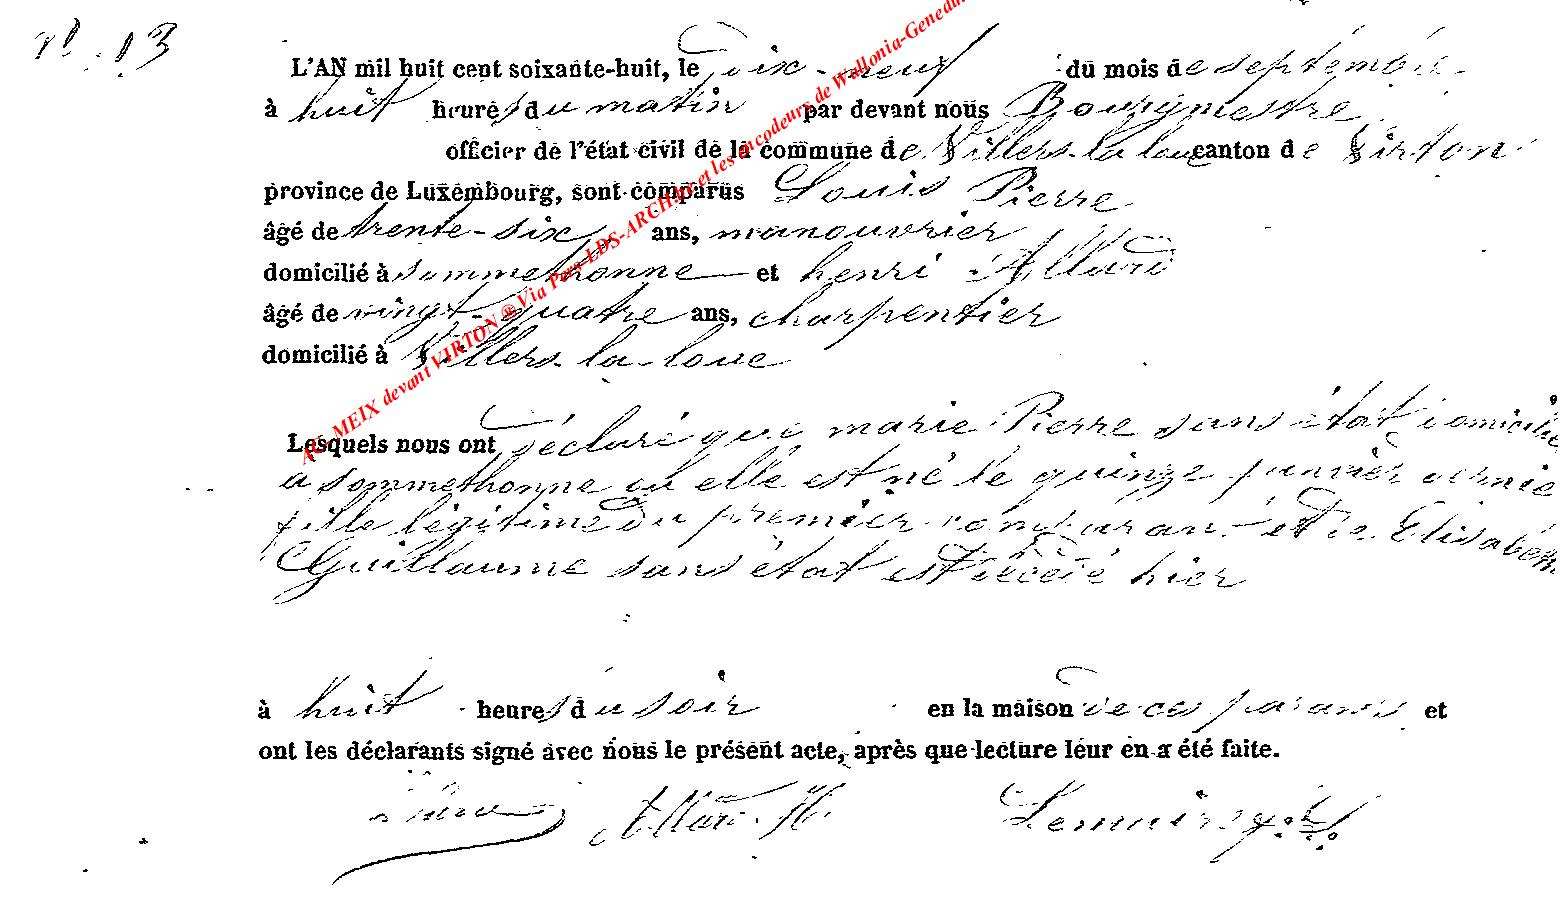 n° 13
L'AN mil huit cent soixante-huit, le Dix-neuf du mois de septembre
à huit heures du matin par devant nous Bourgmestre
officier de l'état civil de la commune de Villers-la-loue canton de Virton
province de Luxembourg, sont comparus Louis Pierre
âgé de trente-six ans, manouvrier
domicilié à sommethonne et henri Allard
âgé de vingt-quatre ans, charpentier
domicilié à Villers-la-loue
Lesquels nous ont Déclaré que marie Pierre sans état domicilié
a sommethonne ou elle est né le quinze janvier dernie
fille légitime Du premier comparant et de Elisabeth
Guillaume sans état est décédé hier
à huit heures du soir en la maison de ces parans et
ont les déclarants signé avec nous le présent acte, après que lecture leur en a été faite.
Allard H.
MEIX devant VIRTON ® Via Pays LDS-ARCHIV et les encodeurs de Wallonia-Genealo